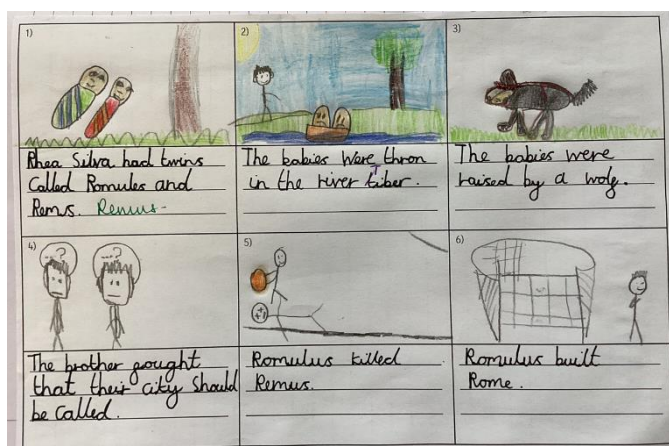 1)
Rhea Silva had twins
Called Romules and
Remus. Remus.
2)
The babies were thron
in the river tiber.
T
3)
The babies were
raised by a wolf.
4)
...?
...?
The brother fought
that their city should
be called.
5)
Romulus killed
Remus.
6)
Romulus built
Rome.